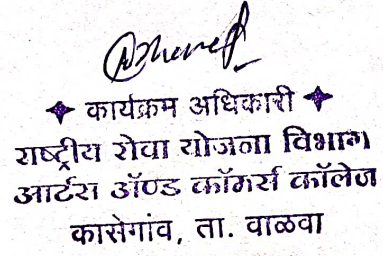 ✦ कार्यक्रम अधिकारी ✦
राष्ट्रीय सेवा योजना विभाग
आर्टस ॲण्ड कॉमर्स कॉलेज
कासेगांव, ता. वाळवा